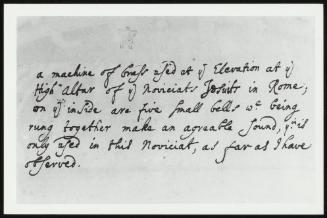 a machine of brass used at yͤ Elevation at yͤ
High Altar of yͤ Noviciats Jesuits in Rome;
on yͤ inside are five small bells wͨ being
rung together make an agreable sound, is
only used in this Noviciat, as far as I have
observed.